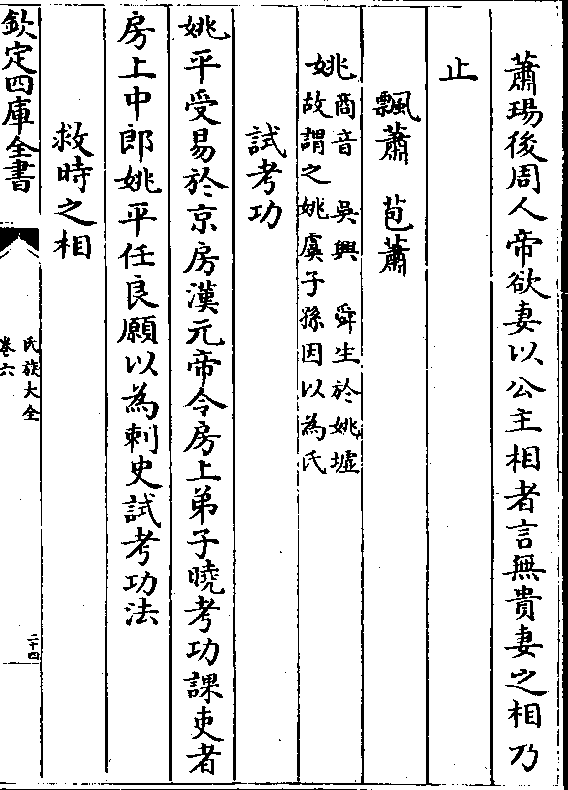 蕭瑒後周人帝欲妻以公主相者言無貴妻之相乃
止
飄蕭　苞蕭
姚
商音　吳興　舜生於姚墟
故謂之姚虞子孫因以為氏
試考功
姚平受易於京房漢元帝令房上弟子曉考功課吏者
房上中郎姚平任良願以為刺史試考功法
救時之相
欽定四庫全書
氏族大全
卷六
二十四